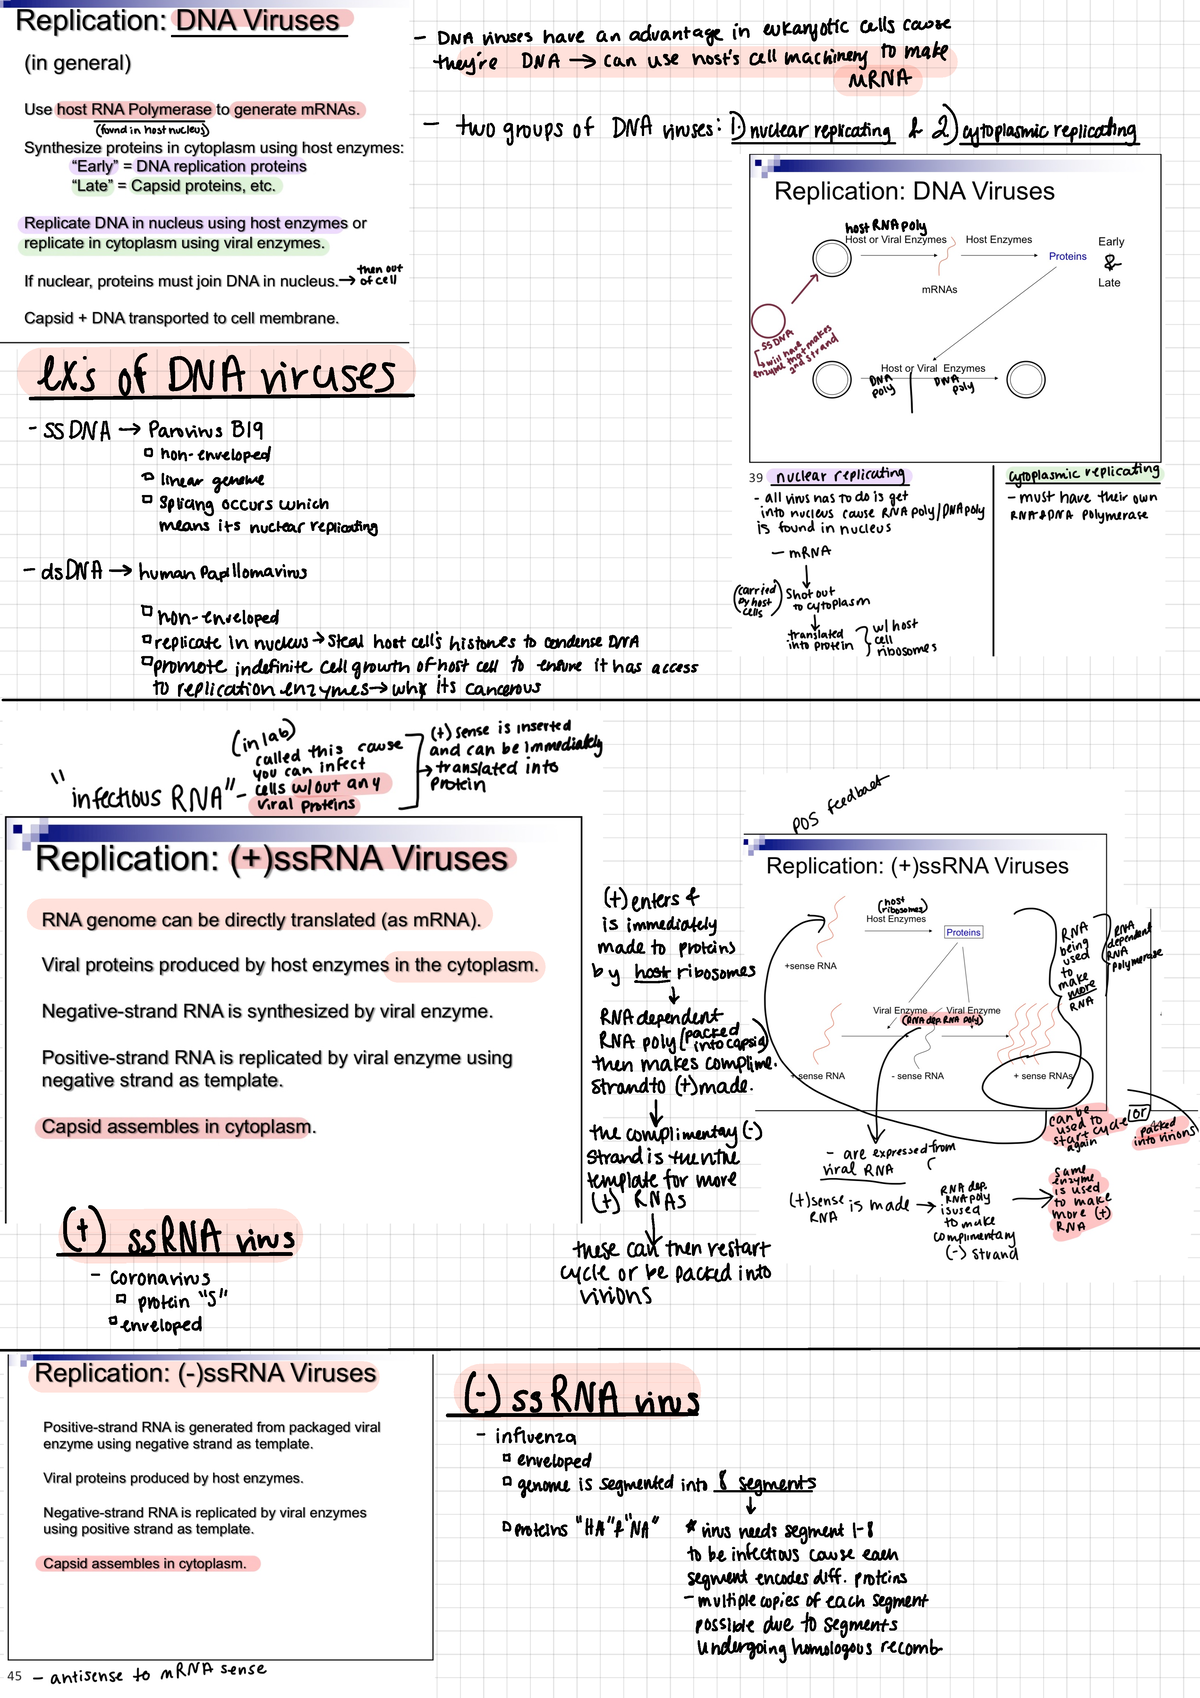 Replication: DNA Viruses
(in general)
Use host RNA Polymerase to generate mRNAs.
(found in host nucleus)
Synthesize proteins in cytoplasm using host enzymes:
“Early” = DNA replication proteins
“Late” = Capsid proteins, etc.
Replicate DNA in nucleus using host enzymes or
replicate in cytoplasm using viral enzymes.
If nuclear, proteins must join DNA in nucleus. → then out
of cell
Capsid + DNA transported to cell membrane.
- DNA viruses have an advantage in eukaryotic cells cause
they're DNA → can use host's cell machinery to make
mRNA
- two groups of DNA viruses: 1) nuclear replicating & 2) cytoplasmic replicating
Replication: DNA Viruses
host RNA poly
Host or Viral Enzymes
Host Enzymes
Early
&
Late
Proteins
mRNAs
ssDNA
↳ will have
enzyme that makes
2nd strand
Host or Viral Enzymes
DNA
poly
DNA
poly
39
nuclear replicating
- all virus has to do is get
into nucleus cause RNA poly/DNA poly
is found in nucleus
- mRNA
↓
(carried
by host
cells)
Shot out
to cytoplasm
↓
translated
into protein
w/ host
cell
ribosomes
cytoplasmic replicating
- must have their own
RNA & DNA Polymerase
ex's of DNA viruses
- ssDNA → Parovirus B19
non-enveloped
linear genome
Splicing occurs which
means its nuclear replicating
- dsDNA → human Papillomavirus
non-enveloped
replicate in nucleus → steal host cell's histones to condense DNA
promote indefinite cell growth of host cell to ensure it has access
to replication enzymes → why its cancerous
"infectious RNA" -
(in lab)
called this cause
you can infect
cells w/out any
viral proteins
(+) sense is inserted
and can be immediately
→ translated into
Protein
Replication: (+)ssRNA Viruses
RNA genome can be directly translated (as mRNA).
Viral proteins produced by host enzymes in the cytoplasm.
Negative-strand RNA is synthesized by viral enzyme.
Positive-strand RNA is replicated by viral enzyme using
negative strand as template.
Capsid assembles in cytoplasm.
(+) enters &
is immediately
made to proteins
by host ribosomes
↓
RNA dependent
RNA poly (packed
into capsid)
then makes complime.
strand to (+) made.
↓
the complimentay (-)
strand is then the
template for more
(+) RNAs
↓
these can then restart
cycle or be packed into
virions
pos feedback
Replication: (+)ssRNA Viruses
(host
ribosomes)
Host Enzymes
Proteins
+sense RNA
Viral Enzyme
Viral Enzyme
(DNA dep. RNA poly)
+ sense RNA
- sense RNA
+ sense RNAs
RNA
being
used
to
make
more
RNA
RNA
dependent
RNA
polymerase
can be
used to
start cycle
again
or
packed
into virions
- are expressed from
viral RNA
(+) sense
RNA
is made →
RNA dep.
RNA poly
is used
to make
complimentary
(-) strand
→
same
enzyme
is used
to make
more (+)
RNA
(+) ssRNA virus
- coronavirus
protein "S"
enveloped
Replication: (-)ssRNA Viruses
Positive-strand RNA is generated from packaged viral
enzyme using negative strand as template.
Viral proteins produced by host enzymes.
Negative-strand RNA is replicated by viral enzymes
using positive strand as template.
Capsid assembles in cytoplasm.
45
- antisense to mRNA sense
(-) ssRNA virus
- influenza
enveloped
genome is segmented into 8 segments
↓
proteins "HA" & "NA"
* virus needs segment 1-8
to be infectious cause each
segment encodes diff. proteins
- multiple copies of each segment
possible due to segments
undergoing homologous recomb